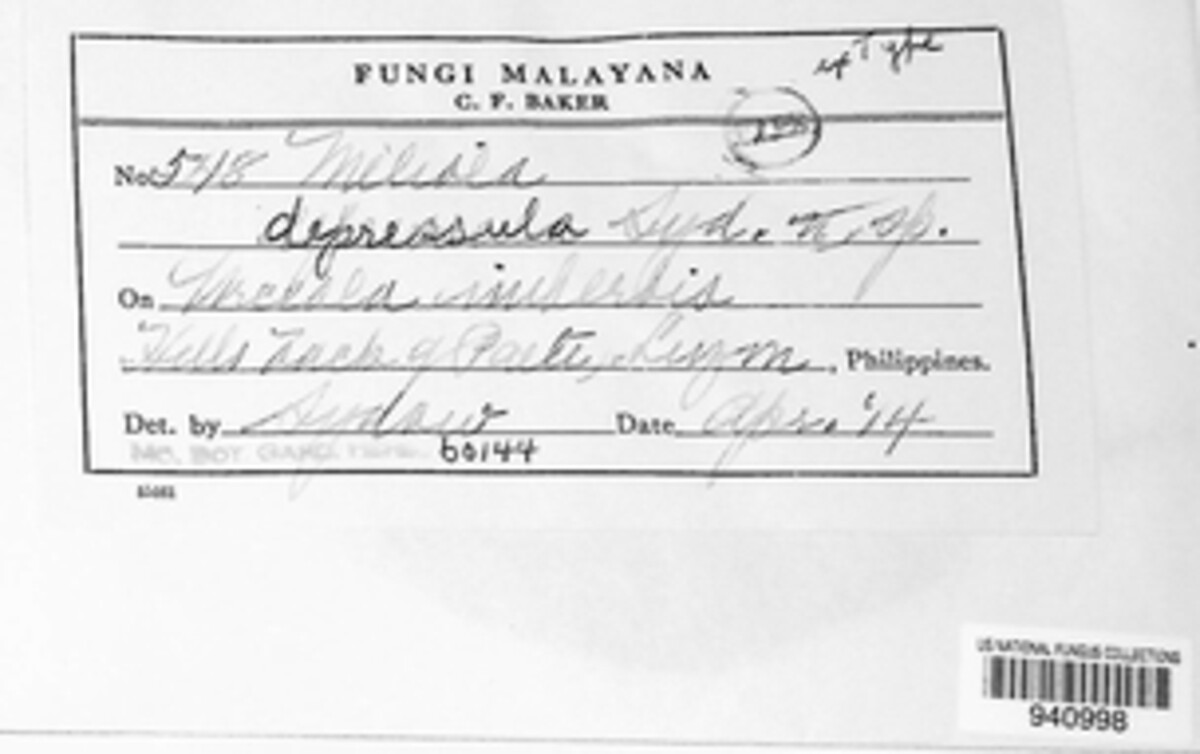 ex Type
FUNGI MALAYANA
C. F. BAKER
No. 5718 Meliola
depressula Syd. n. sp.
On imberbis
Hills back of Paete, Luzon, Philippines.
Det. by Sydow Date Apr. '14
MO. BOT. GARD. HERB. 60144
US NATIONAL FUNGUS COLLECTIONS
940998